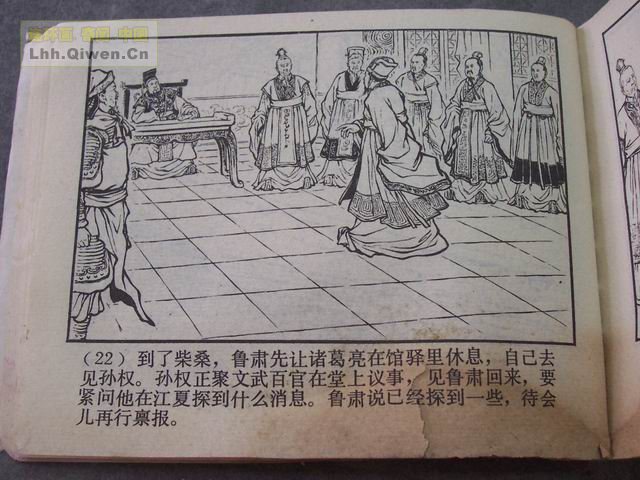 Lhh.Qiwen.Cn
（22）到了柴桑，鲁肃先让诸葛亮在馆驿里休息，自己去
见孙权。孙权正聚文武百官在堂上议事，见鲁肃回来，要
紧问他在江夏探到什么消息。鲁肃说已经探到一些，待会
儿再行禀报。